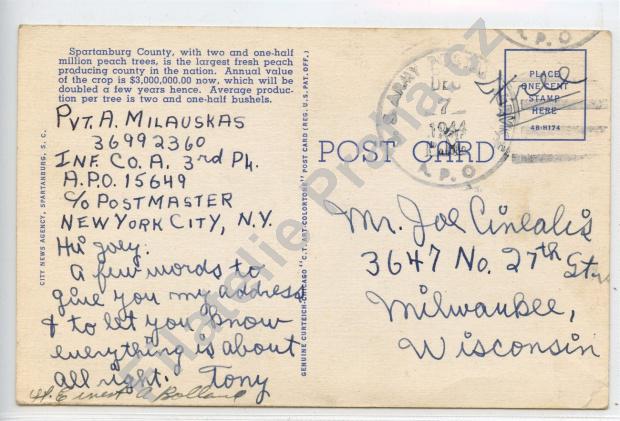 Spartanburg County, with two and one-half
million peach trees, is the largest fresh peach
producing county in the nation. Annual value
of the crop is $3,000,000.00 now, which will be
doubled a few years hence. Average produc-
tion per tree is two and one-half bushels.
PVT. A. MILAUSKAS
36992360
INF. CO. A. 3rd PL.
A.P.O. 15649
c/o POSTMASTER
NEW YORK CITY, N.Y.
Hi Joey.
A few words to
give you my address
& to let you know
everything is about
all right. Tony
CITY NEWS AGENCY, SPARTANBURG, S. C.
GENUINE CURTEICH-CHICAGO "C.T. ART-COLORTONE" POST CARD (REG. U. S. PAT. OFF.)
POST CARD
U.S. ARMY
DEC
7
1944
A.P.O.
A.P.O
Free
PLACE
ONE CENT
STAMP
HERE
4B-H174
Mr. Joe Cinealis
3647 No. 27th St.
Milwaukee,
Wisconsin
Filatelie Praha.cz